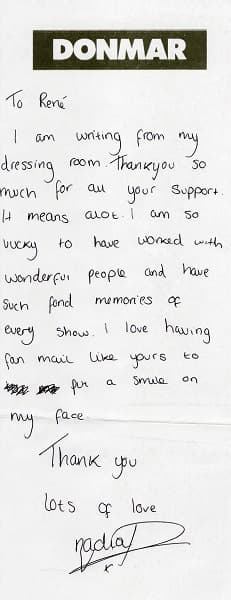 DONMAR
To René
I am writing from my
dressing room. Thankyou so
much for all your support.
It means alot. I am so
lucky to have worked with
wonderful people and have
such fond memories of
every show. I love having
fan mail like yours to
put a smile on
my face.
Thank you
lots of love
nadia
x